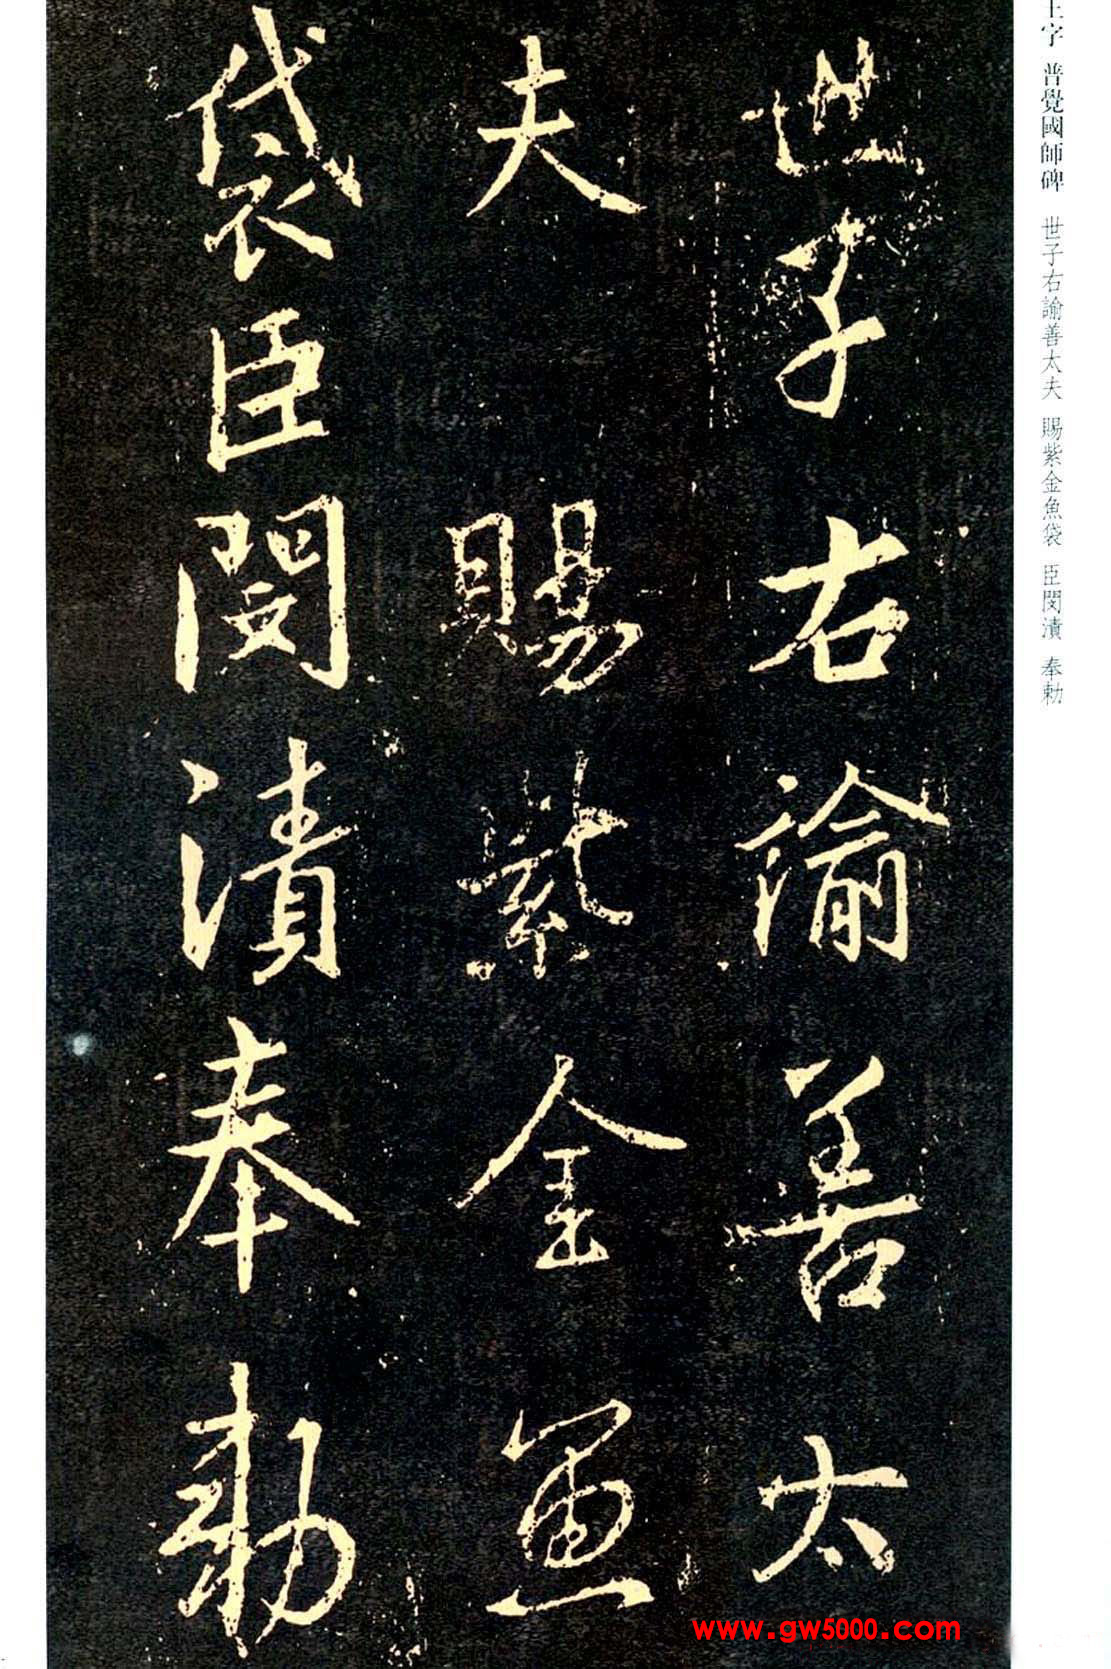 世子右諭善太
夫 賜紫金魚
袋臣閔漬奉勅
王字 普覺國師碑 世子右諭善太夫 賜紫金魚袋 臣閔漬 奉勅
www.gw5000.com